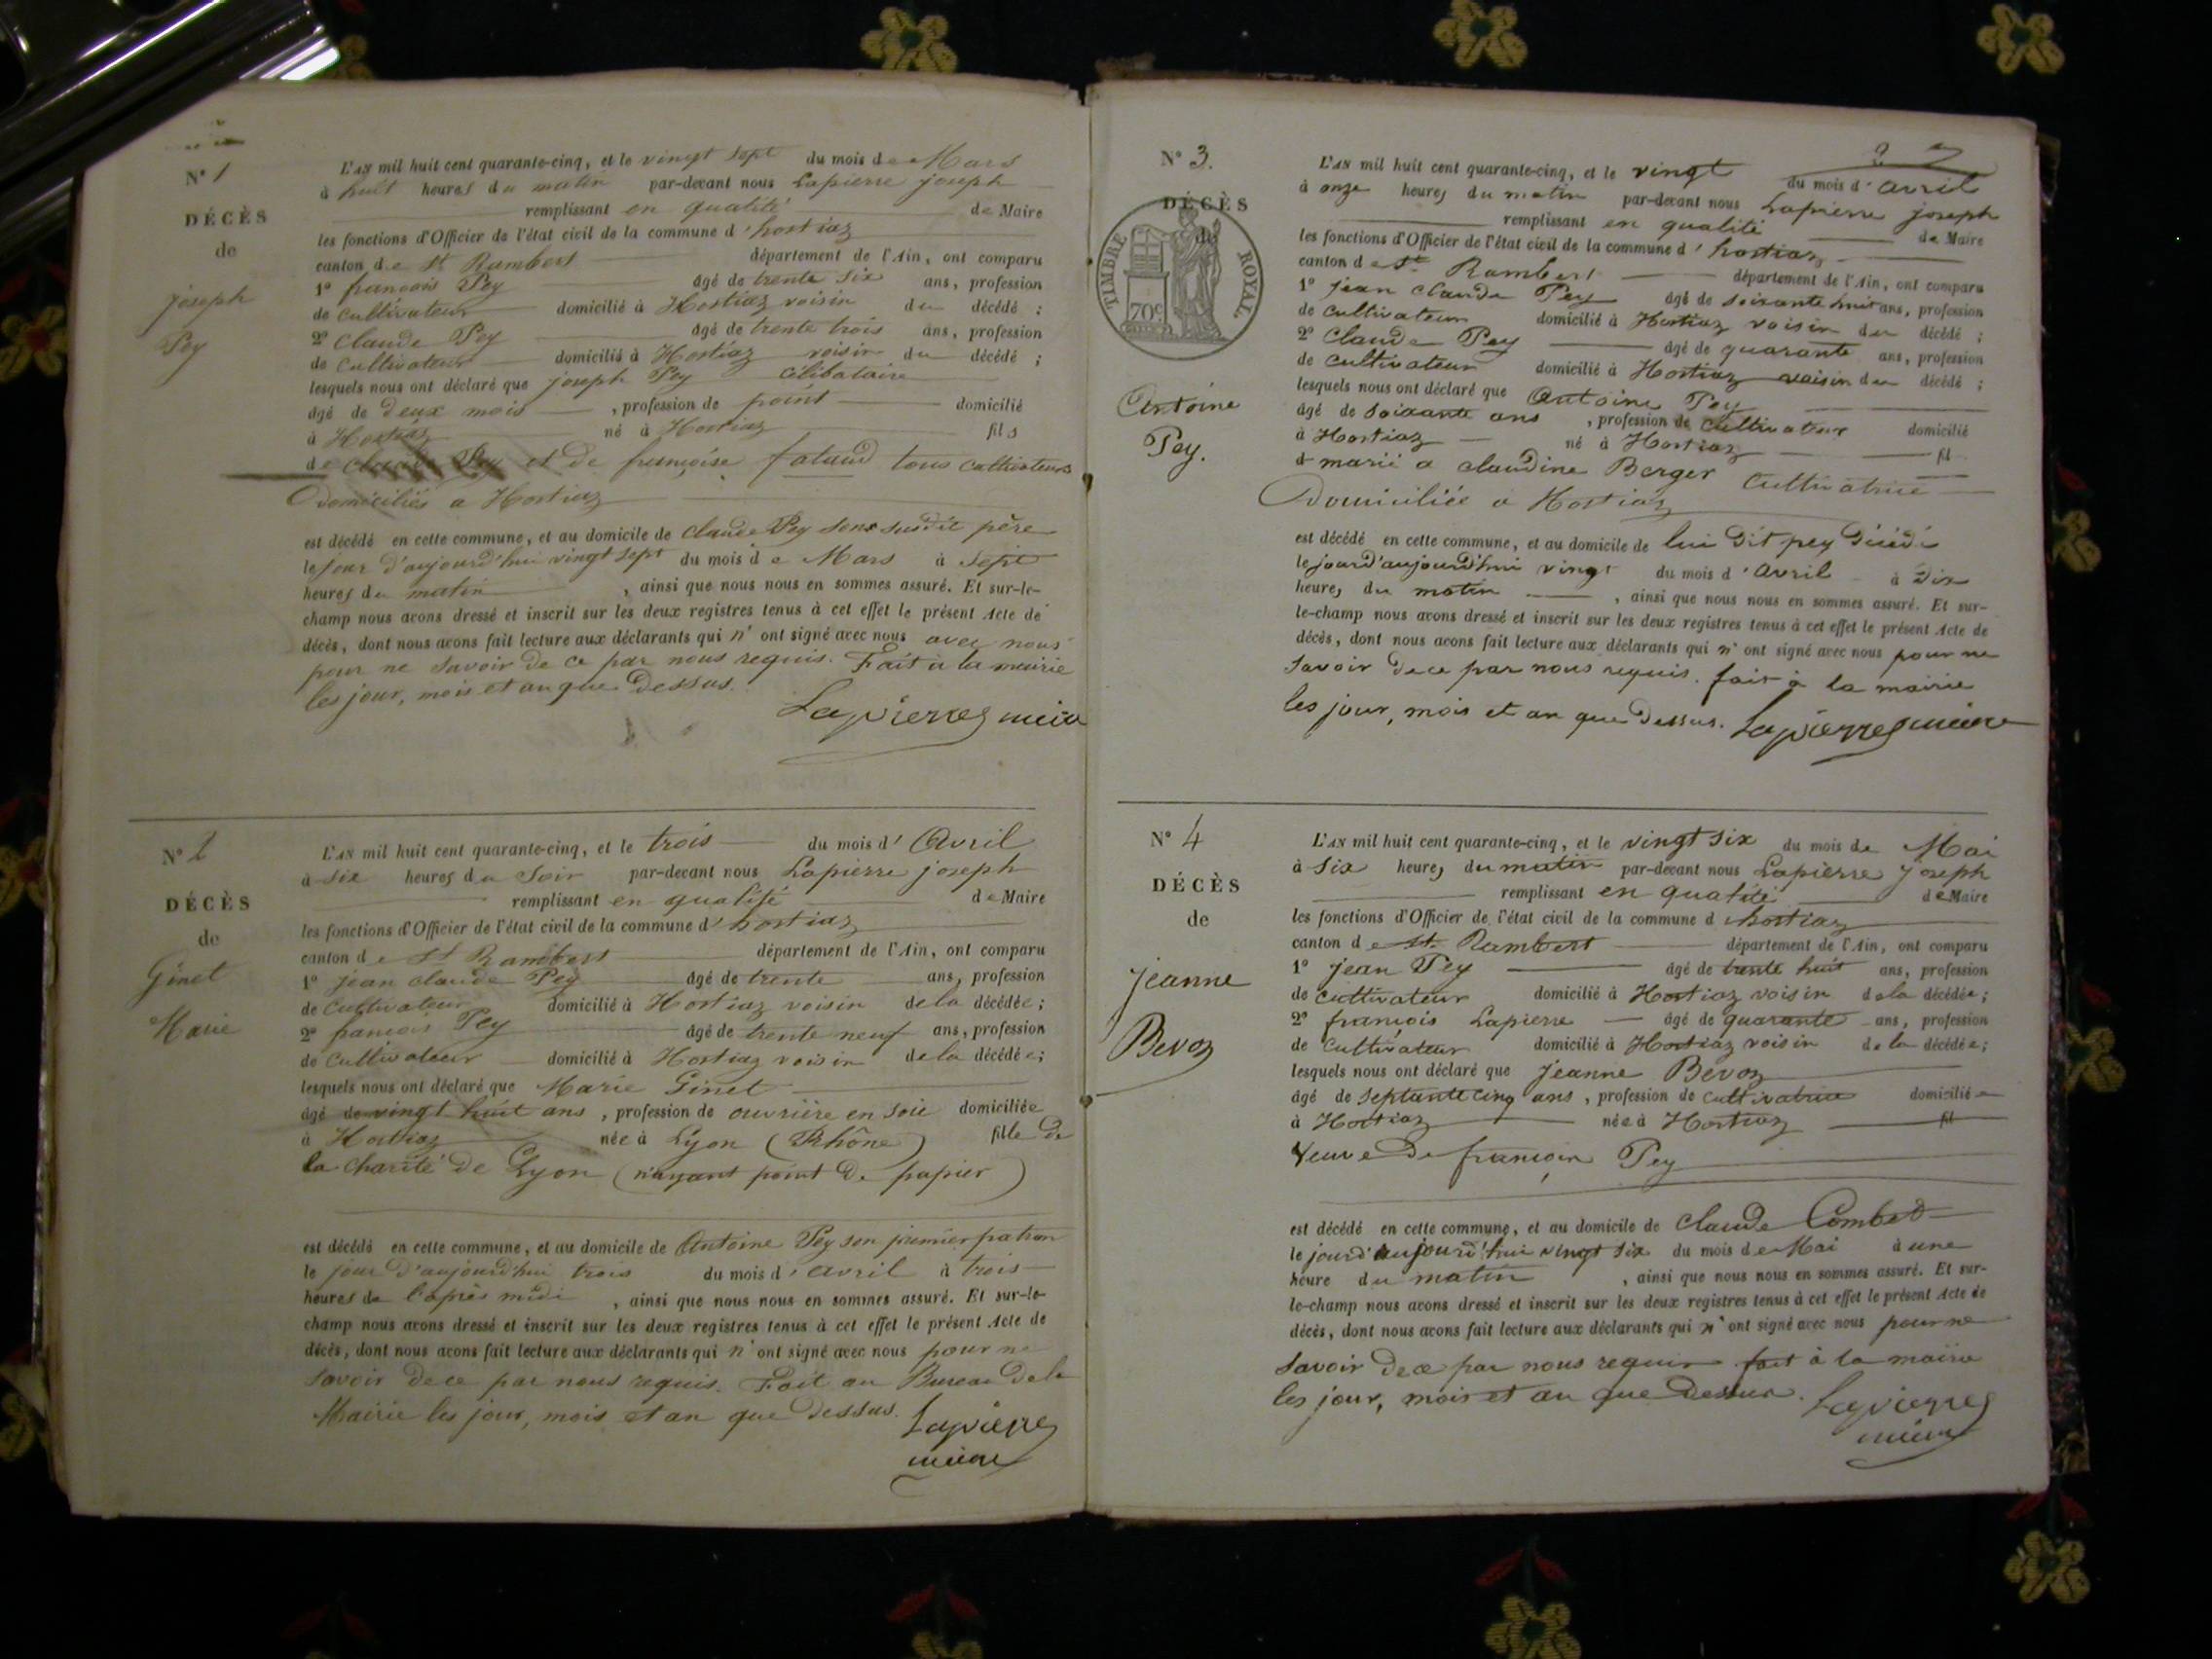 N° 1
DÉCÈS
de
joseph
Pey
L'AN mil huit cent quarante-cinq, et le vingt sept du mois de Mars
à huit heures du matin par-devant nous Lapierre joseph
remplissant en qualité de Maire
les fonctions d'Officier de l'état civil de la commune d'hostiaz
canton de St Rambert département de l'Ain, ont comparu
1° francois Pey âgé de trente six ans, profession
de Cultivateur domicilié à Hostiaz voisin du décédé ;
2° Claude Pey âgé de trente trois ans, profession
de Cultivateur domicilié à Hostiaz voisin du décédé ;
lesquels nous ont déclaré que joseph Pey célibataire
âgé de deux mois , profession de point domicilié
à Hostiaz né à Hostiaz fils
de claude Pey et de françoise tous cultivateurs
Domiciliés a Hostiaz
est décédé en cette commune, et au domicile de claude Pey susdit père
le jour d'aujourd'hui vingt sept du mois de Mars à Sept
heures du matin , ainsi que nous nous en sommes assuré. Et sur-le-
champ nous avons dressé et inscrit sur les deux registres tenus à cet effet le présent Acte de
décès, dont nous avons fait lecture aux déclarants qui n'ont signé avec nous avec nous
pour ne savoir de ce par nous requis. Fait à la mairie
les jour, mois et an que Dessus.
Lapierre maire
N° 2
DÉCÈS
de
Ginet
Marie
L'AN mil huit cent quarante-cinq, et le trois du mois d'Avril
à six heures du Soir par-devant nous Lapierre joseph
remplissant en qualité de Maire
les fonctions d'Officier de l'état civil de la commune d'hostiaz
canton de St Rambert département de l'Ain, ont comparu
1° jean claude Pey âgé de trente ans, profession
de Cultivateur domicilié à Hostiaz voisin de la décédée ;
2° francois Pey âgé de trente neuf ans, profession
de Cultivateur domicilié à Hostiaz voisin de la décédée ;
lesquels nous ont déclaré que Marie Ginet
âgé de vingt huit ans , profession de ouvrière en soie domiciliée
à Hostiaz née à Lyon (Rhône) fille de
la charité de Lyon (n'ayant point de papier)
est décédé en cette commune, et au domicile de Antoine Pey son premier patron
le jour d'aujourd'hui trois du mois d'avril à trois
heures de l'après midi , ainsi que nous nous en sommes assuré. Et sur-le-
champ nous avons dressé et inscrit sur les deux registres tenus à cet effet le présent Acte de
décès, dont nous avons fait lecture aux déclarants qui n'ont signé avec nous pour ne
savoir de ce par nous requis. Fait au Bureau de la
Mairie les jour, mois et an que Dessus. Lapierre
maire
N° 3.
DÉCÈS
de
TIMBRE ROYAL
70c
Antoine
Pey.
L'AN mil huit cent quarante-cinq, et le vingt du mois d'avril
à onze heures du matin par-devant nous Lapierre joseph
remplissant en qualité de Maire
les fonctions d'Officier de l'état civil de la commune d'hostiaz
canton de St Rambert département de l'Ain, ont comparu
1° jean claude Pey âgé de soixante huit ans, profession
de cultivateur domicilié à Hostiaz voisin du décédé ;
2° Claude Pey âgé de quarante ans, profession
de cultivateur domicilié à Hostiaz voisin du décédé ;
lesquels nous ont déclaré que Antoine Pey
âgé de soixante ans , profession de cultivateur domicilié
à Hostiaz né à Hostiaz fil
d marié a claudine Berger Cultivatrice
Domiciliée a Hostiaz
est décédé en cette commune, et au domicile de lui dit pey décédé
le jourd'aujourd'hui vingt du mois d'Avril à dix
heures du matin , ainsi que nous nous en sommes assuré. Et sur-
le-champ nous avons dressé et inscrit sur les deux registres tenus à cet effet le présent Acte de
décès, dont nous avons fait lecture aux déclarants qui n'ont signé avec nous pour ne
savoir de ce par nous requis. fait à la mairie
les jour, mois et an que Dessus. Lapierre maire
N° 4
DÉCÈS
de
jeanne
Bevoz
L'AN mil huit cent quarante-cinq, et le vingt six du mois de Mai
à six heures du matin par-devant nous Lapierre Joseph
remplissant en qualité de Maire
les fonctions d'Officier de l'état civil de la commune d hostiaz
canton de St Rambert département de l'Ain, ont comparu
1° jean Pey âgé de trente huit ans, profession
de cultivateur domicilié à Hostiaz voisin de la décédée ;
2° francois Lapierre âgé de quarante ans, profession
de cultivateur domicilié à Hostiaz voisin de la décédée ;
lesquels nous ont déclaré que jeanne Bevoz
âgé de septante cinq ans , profession de cultivatrice domiciliée
à Hostiaz née à Hostiaz fil
Veuve de francois Pey
est décédé en cette commune, et au domicile de claude Combet
le jourd'aujourd'hui vingt six du mois de Mai à une
heure du matin , ainsi que nous nous en sommes assuré. Et sur-
le-champ nous avons dressé et inscrit sur les deux registres tenus à cet effet le présent Acte de
décès, dont nous avons fait lecture aux déclarants qui n'ont signé avec nous pour ne
savoir de ce par nous requis fait à la mairie
les jour, mois et an que Dessus. Lapierre
maire